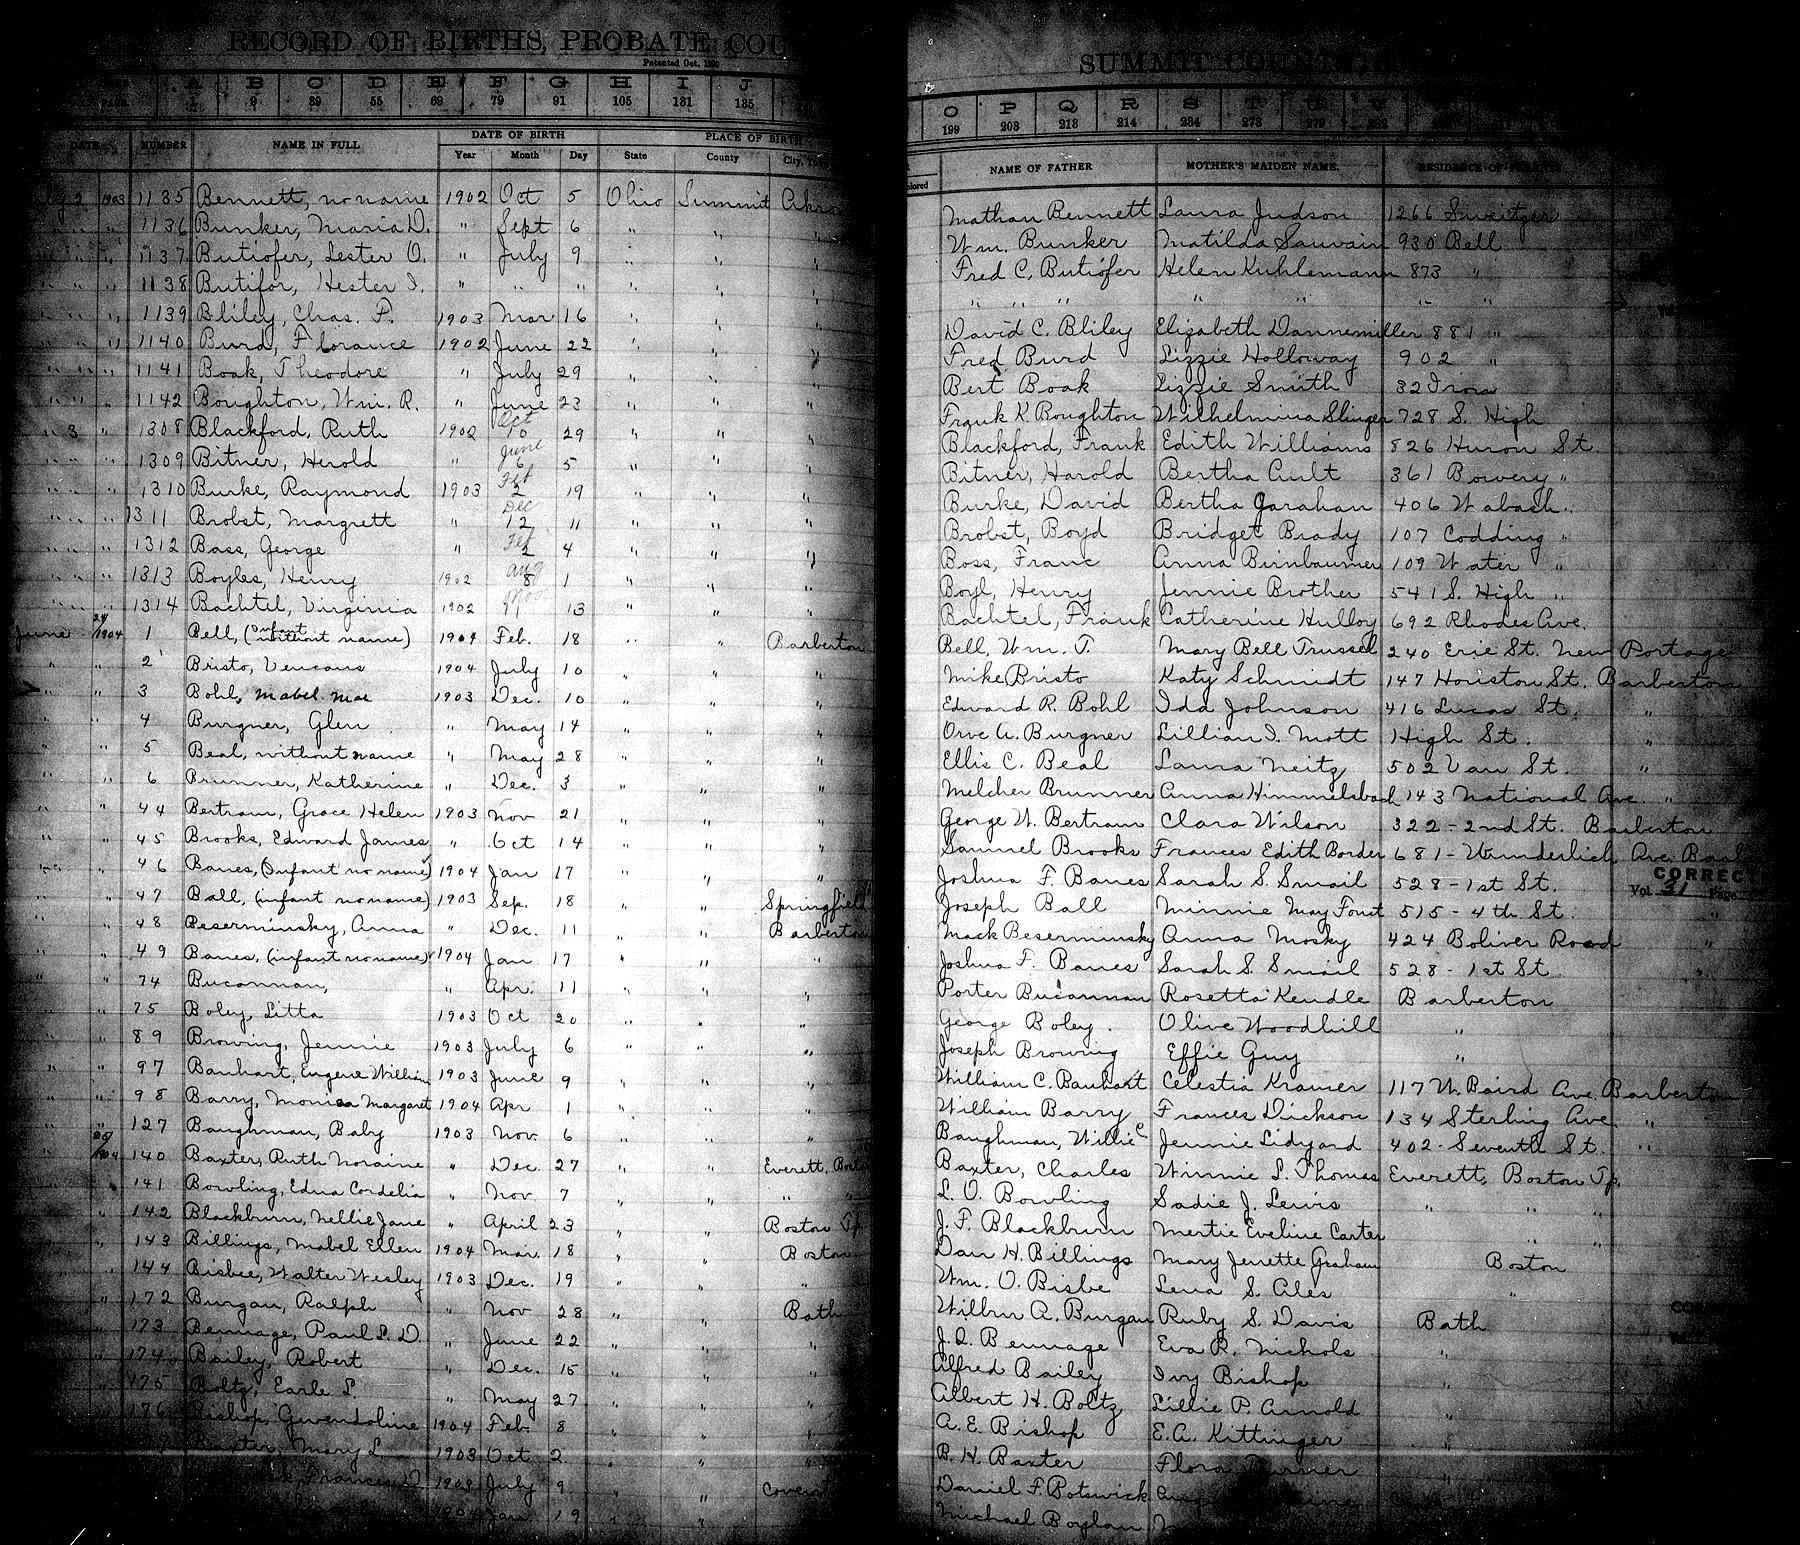 RECORD OF BIRTHS, PROBATE COU
Patented Oct. 1890
A B C D E F G H I J
PAGE 1 9 39 55 69 79 91 105 131 135
DATE NUMBER NAME IN FULL DATE OF BIRTH PLACE OF BIRTH
Year Month Day State County City,
SUMMIT COUNTY,
O P Q R S T
199 203 213 214 234 273 279
NAME OF FATHER MOTHER'S MAIDEN NAME. RESIDENCE OF PARENTS
olored
2 1903 1135 Bennett, no name 1902 Oct 5 Ohio Summit Akro Nathan Bennett Laura Judson 1266 Sweitzer
" " 1136 Bunker, Maria D. " Sept 6 " " " Wm. Bunker Matilda Sauvain 930 Bell
" " 1137 Butiofer, Lester O. " July 9 " " " Fred C. Butiofer Helen Kuhlemann 873 "
" " 1138 Butifor, Hester I. " " " " " " " " " " " " "
" " 1139 Bliley, Chas. P. 1903 Mar 16 " " " David C. Bliley Elizabeth Dannemiller 881 "
" " 1140 Burd, Florance 1902 June 22 " " " Fred Burd Lizzie Holloway 902 "
" " 1141 Boak, Theodore " July 29 " " " Bert Boak Lizzie Smith 32 Iron
" " 1142 Boughton, Wm. R. " June 23 " " " Frank K. Boughton Wilhelmina Slinger 728 S. High
" 3 " 1308 Blackford, Ruth 1902 Oct 10 29 " " " Blackford, Frank Edith Williams 826 Huron St.
" " 1309 Bitner, Herold " June 6 5 " " " Bitner, Harold Bertha Ault 361 Bowery "
" " 1310 Burke, Raymond 1903 Feb 2 19 " " " Burke, David Bertha Garahan 406 Wabash "
" " 1311 Brobst, Margrett " Dec 12 11 " " " Brobst, Boyd Bridget Brady 107 Codding "
" " 1312 Bass, George " Feb 2 4 " " " Boss, Franc Anna Birnbaumer 109 Water "
" " 1313 Boyles, Henry 1902 Aug 8 1 " " " Boyl, Henry Jennie Brother 541 S. High "
" " 1314 Bachtel, Virginia 1902 Nov 11 13 " " " Bachtel, Frank Catherine Hulloy 692 Rhodes Ave.
June 24/1904 1 Bell, (infant without name) 1904 Feb. 18 " " Barberton Bell, Wm. T. Mary Bell Trussel 240 Erie St. New Portage
" " 2 Bristo, Vencans 1904 July 10 " " " Mike Bristo Katy Schmidt 147 Houston St. Barberton
" " 3 Bohl, Mabel Mae 1903 Dec. 10 " " " Edward R. Bohl Ida Johnson 416 Lucas St. "
" " 4 Burgner, Glen " May 14 " " " Orve A. Burgner Lillian I. Mott High St. "
" " 5 Beal, without name " May 28 " " " Ellis C. Beal Laura Neitz 502 Van St. "
" " 6 Brunner, Katherine " Dec. 3 " " " Melcher Brunner Anna Himmelsbach 143 National Ave. "
" " 44 Bertram, Grace Helen 1903 Nov 21 " " " George W. Bertram Clara Wilson 322-2nd St. Barberton
" " 45 Brooks, Edward James " Oct 14 " " " Samuel Brooks Frances Edith Border 681-Wunderlich Ave. Barb
" " 46 Banes, (Infant no name) 1904 Jan 17 " " " Joshua F. Banes Sarah S. Smail 528-1st St.
CORRECT
Vol. 31 Page
" " 47 Ball, (infant no name) 1903 Sep. 18 " " Springfield Joseph Ball Minnie May Foust 515-4th St. "
" " 48 Beserminsky, Anna " Dec. 11 " " Barberton Mack Beserminsky Anna Mosky 424 Boliver Road "
" " 49 Banes, (infant no name) 1904 Jan 17 " " " Joshua F. Banes Sarah S. Smail 528-1st St. "
" " 74 Bucannan, " Apr. 11 " " " Porter Bucannan Rosetta Kendle Barberton
" " 75 Boley, Litta 1903 Oct 20 " " " George Boley. Olive Woodhill "
" " 89 Browing, Jennie 1903 July 6 " " " Joseph Browing Effie Guy "
" " 97 Banhart, Eugene William 1903 June 9 " " " William C. Banhart Celestia Kramer 117 W. Baird Ave. Barberton
" " 98 Barry, Monica Margaret 1904 Apr 1 " " " William Barry Frances Dickson 134 Sterling Ave. "
" 127 Baughman, Baby 1903 Nov. 6 " " " Baughman, Willie C. Jennie Lidyard 402-Seventh St. "
25/1904 140 Baxter, Ruth Noraine " Dec. 27 " " Everett, Bost Baxter, Charles Winnie L. Thomas Everett, Boston Tp.
" 141 Bowling, Edna Cordelia " Nov. 7 " " " " L. O. Bowling Sadie J. Lewis " " "
" 142 Blackburn, Nellie Jane " April 23 " " Boston Tp. J. F. Blackburn Mertie Eveline Carter " "
" 143 Billings, Mabel Ellen 1904 Mar. 18 " " Boston Dan H. Billings Mary Jenette Graham Boston
" 144 Bisbee, Walter Wesley 1903 Dec. 19 " " " Wm. O. Bisbe Lena S. Ales "
" 172 Burgan, Ralph " Nov 28 " " Bath Wilbur A. Burgan Ruby S. Davis Bath
" 173 Bennage, Paul L. D. " June 22 " " " J. Q. Bennage Eva R. Nichols "
" 174 Bailey, Robert " Dec. 15 " " " Alfred Bailey Ivy Bishop "
" 175 Boltz, Earle L. " May 27 " " " Albert H. Boltz Lillie P. Arnold "
" 176 Bishop, Gwendoline 1904 Feb. 8 " " " A. E. Bishop E. A. Kittinger "
Baxter, Mary L. 1903 Oct 2 " " " B. H. Baxter Flora "
Frances D. 1903 July 9 " " Covent Daniel F. Botswick
1904 Jan. 19 " " " Michael Boylan